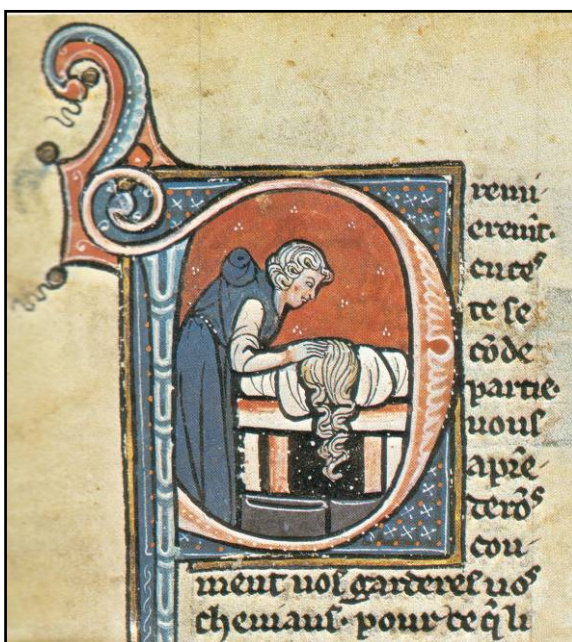 Premi
eremt.
en ces
te se
cōde
partie.
vous
apre
terōs
con
ment vos garderes vos
cheviaus. pour ce q̄ li